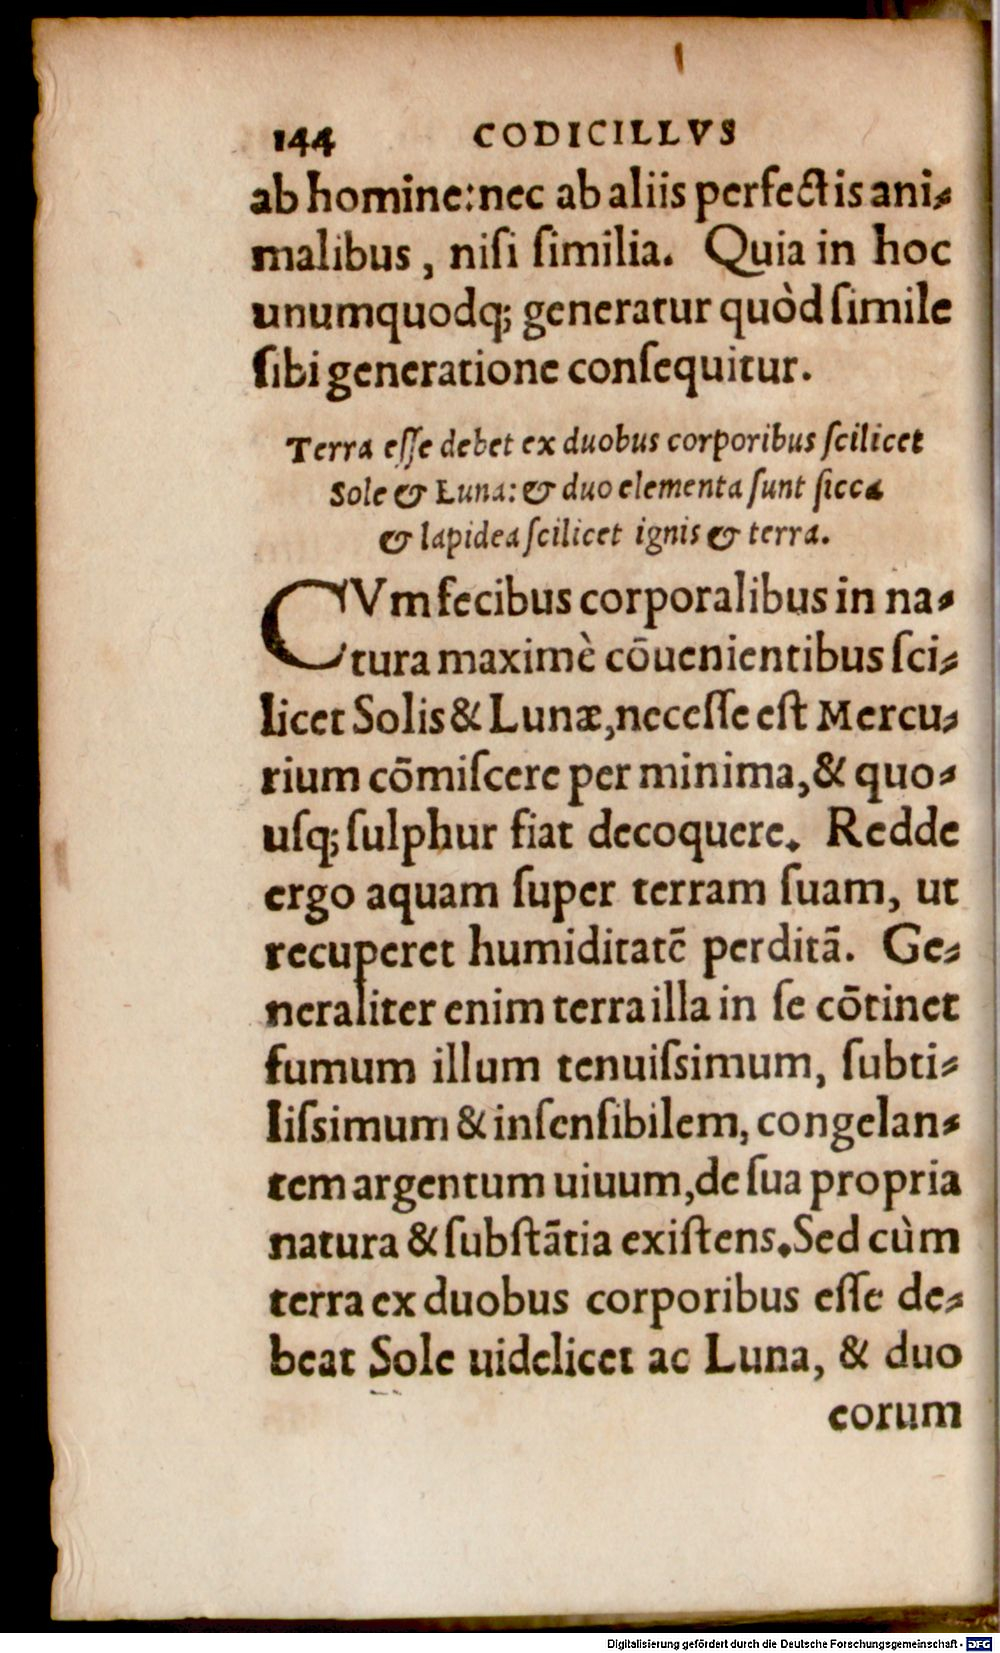 144 CODICILLVS
ab homine: nec ab aliis perfectis ani⸗
malibus, niſi ſimilia. Quia in hoc
unumquodq; generatur quòd ſimile
ſibi generatione conſequitur.
Terra eſſe debet ex duobus corporibus ſcilicet
Sole & Luna: & duo elementa ſunt ſicca
& lapidea ſcilicet ignis & terra.
CVm fecibus corporalibus in na⸗
tura maximè cōuenientibus ſci⸗
licet Solis & Lunæ, neceſſe eſt Mercu⸗
rium cōmiſcere per minima, & quo⸗
uſq; ſulphur fiat decoquere. Redde
ergo aquam ſuper terram ſuam, ut
recuperet humiditatē perditā. Ge⸗
neraliter enim terra illa in ſe cōtinet
fumum illum tenuiſsimum, ſubti⸗
liſsimum & inſenſibilem, congelan⸗
tem argentum uiuum, de ſua propria
natura & ſubſtātia exiſtens. Sed cùm
terra ex duobus corporibus eſſe de⸗
beat Sole uidelicet ac Luna, & duo
eorum
Digitalisierung gefördert durch die Deutsche Forschungsgemeinschaft - DFG